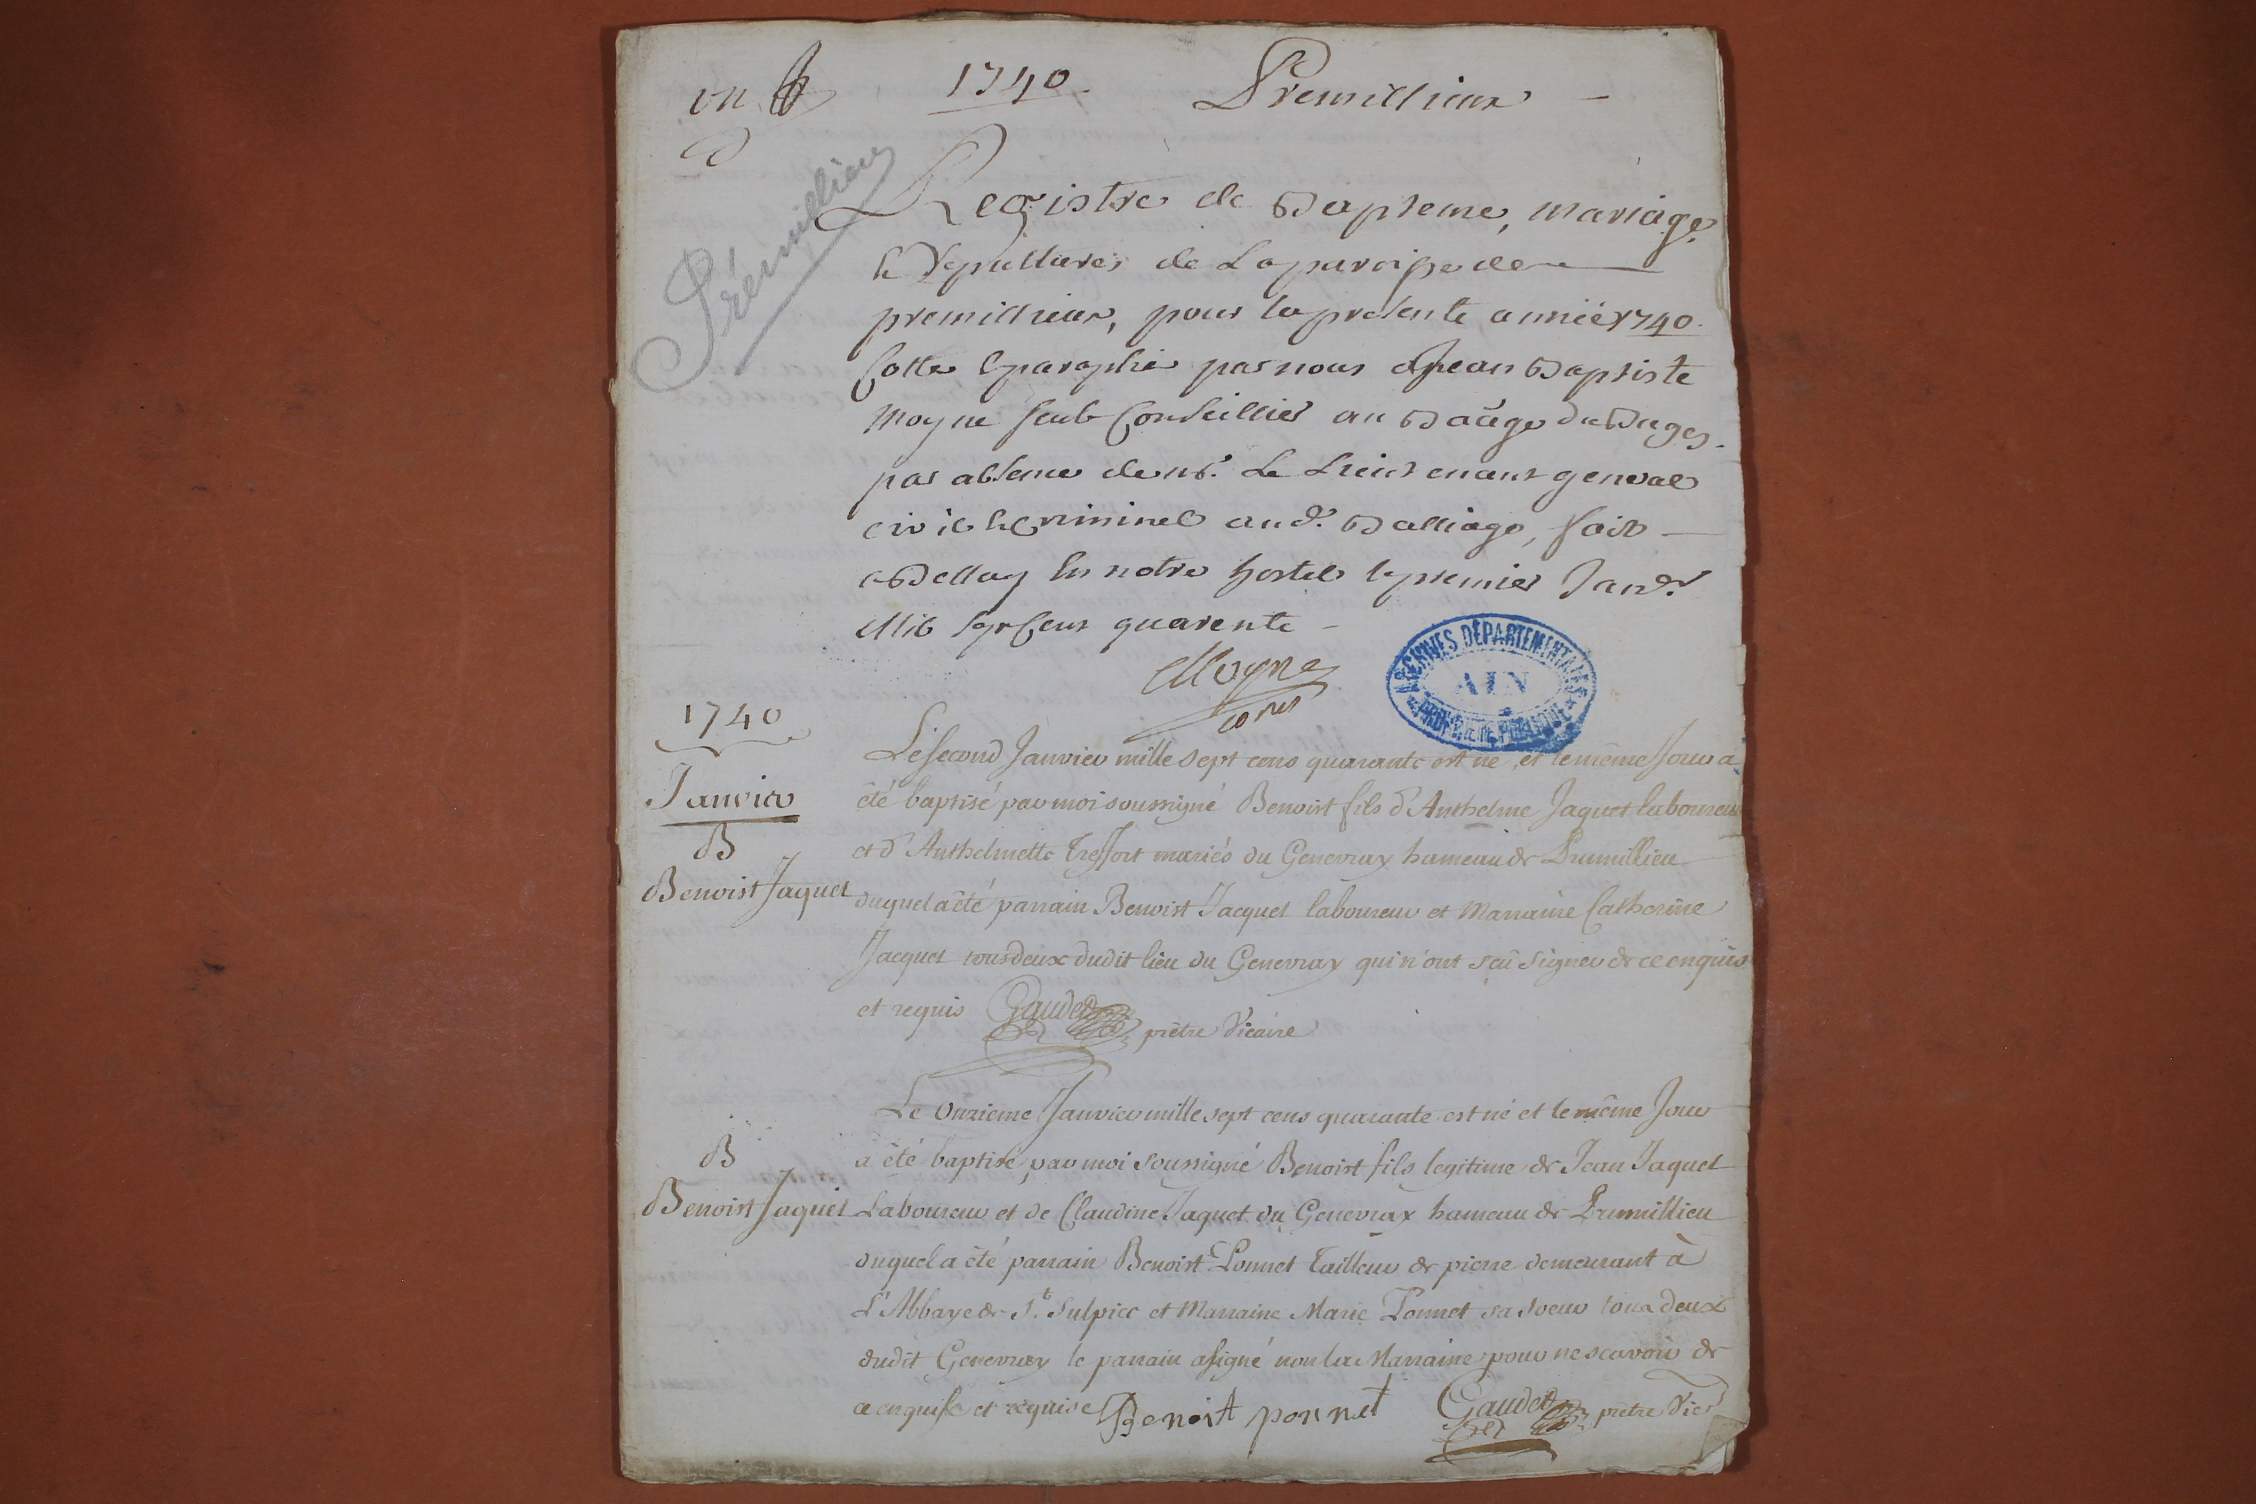 un
1740.
Premillieux
Prémillieu
Registre de Bapteme, mariage,
& Sepultures de La paroisse de
premillieux, pour la presente année 1740.
Cotte & paraphé par nous Jean Baptiste
Moyne seul Conseillier au Baage du Bugey
par absence de Mr. Le Lieutenant general
civil & Criminel aud. Balliage, fait
a Bellay En notre hostel le premier Janvr.
Mil sept Cent quarente
Moyne
coner
ARCHIVES DÉPARTEMENTALES
AIN
PROPRIÉTÉ PUBLIQUE
1740
Janvier
B
Benoist Jaquet
Le second Janvier mille sept cens quarante est né, et le même Jour a
été baptisé par moi soussigné Benoist fils d'Anthelme Jaquet laboureur
et d'Anthelmette Treffort mariés du Genevray hameau de Prumillieu
duquel a été parrain Benoist Jacquet laboureur et Marraine Catherine
Jacquet tous deux dudit lieu du Genevray qui n'ont sçu signer de ce enquis
et requis Gaudet prêtre Vicaire
B
Benoist Jaquet
Le Onzieme Janvier mille sept cens quarante est né et le même Jour
a été baptisé par moi soussigné Benoist fils legitime de Jean Jaquet
Laboureur et de Claudine Jaquet du Genevray hameau de Prumillieu
duquel a été parrain Benoist Ponnet Tailleur de pierre demeurant à
L'Abbaye de St. Sulpice et Marraine Marie Ponnet sa soeur tous deux
dudit Genevray le parrain a signé non la Marraine pour ne scavoir de
ce enquise et requise Benoit ponnet Gaudet prêtre Vic